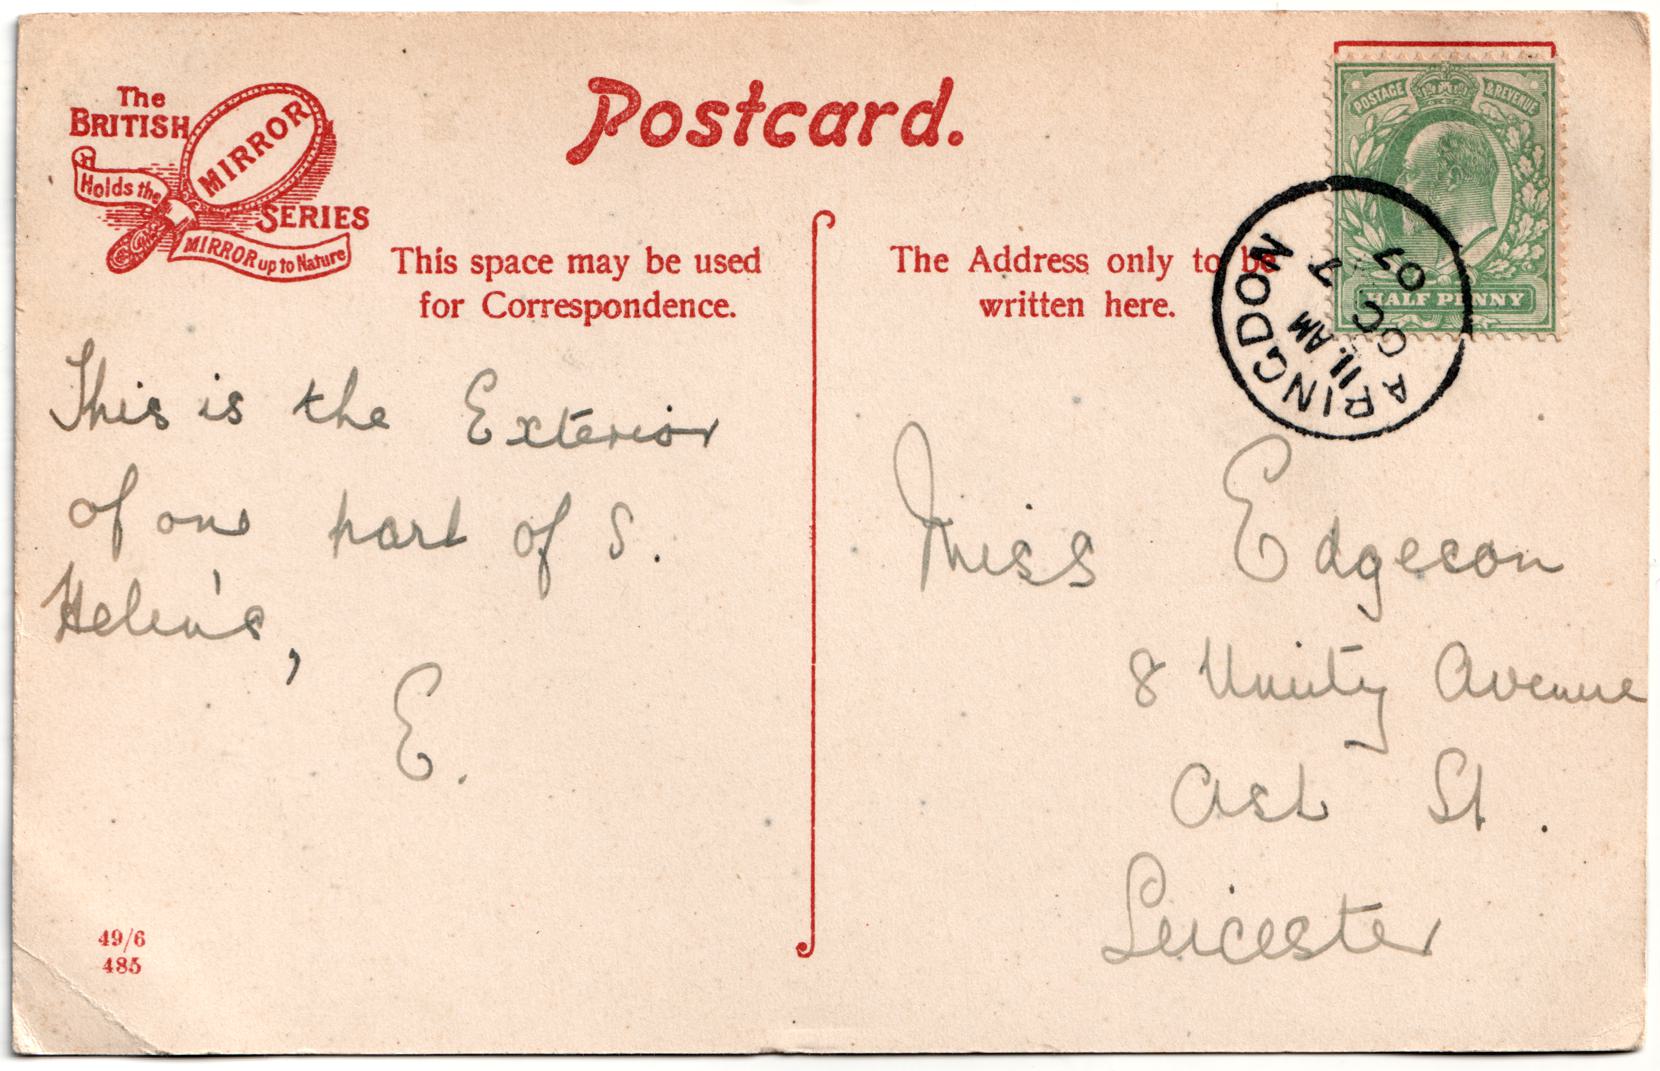 The
BRITISH
MIRROR
SERIES
Holds the
MIRROR up to Nature
Postcard.
This space may be used
for Correspondence.
The Address only to be
written here.
POSTAGE & REVENUE
HALF PENNY
ABINGDON
11. AM
OC 7
07
This is the Exterior
of one part of S.
Helen's,
E.
Miss Edgeson
8 Unity Avenue
Ash St.
Leicester
49/6
485